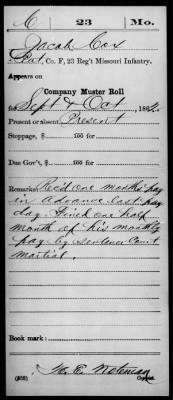 C | 23 | Mo.
Jacob Cox
, Co. F, 23 Reg't Missouri Infantry.
Appears on
Company Muster Roll
for Sept & Oct, 186
Present or absent Present
Stoppage, $ 100 for
Due Gov't, $ 100 for
Remarks: Rec'd one months pay
in advance last pay
day. Fined one half
month of his monthly
pay by sentence Court
martial.
Book mark:
(358)
Copyist.